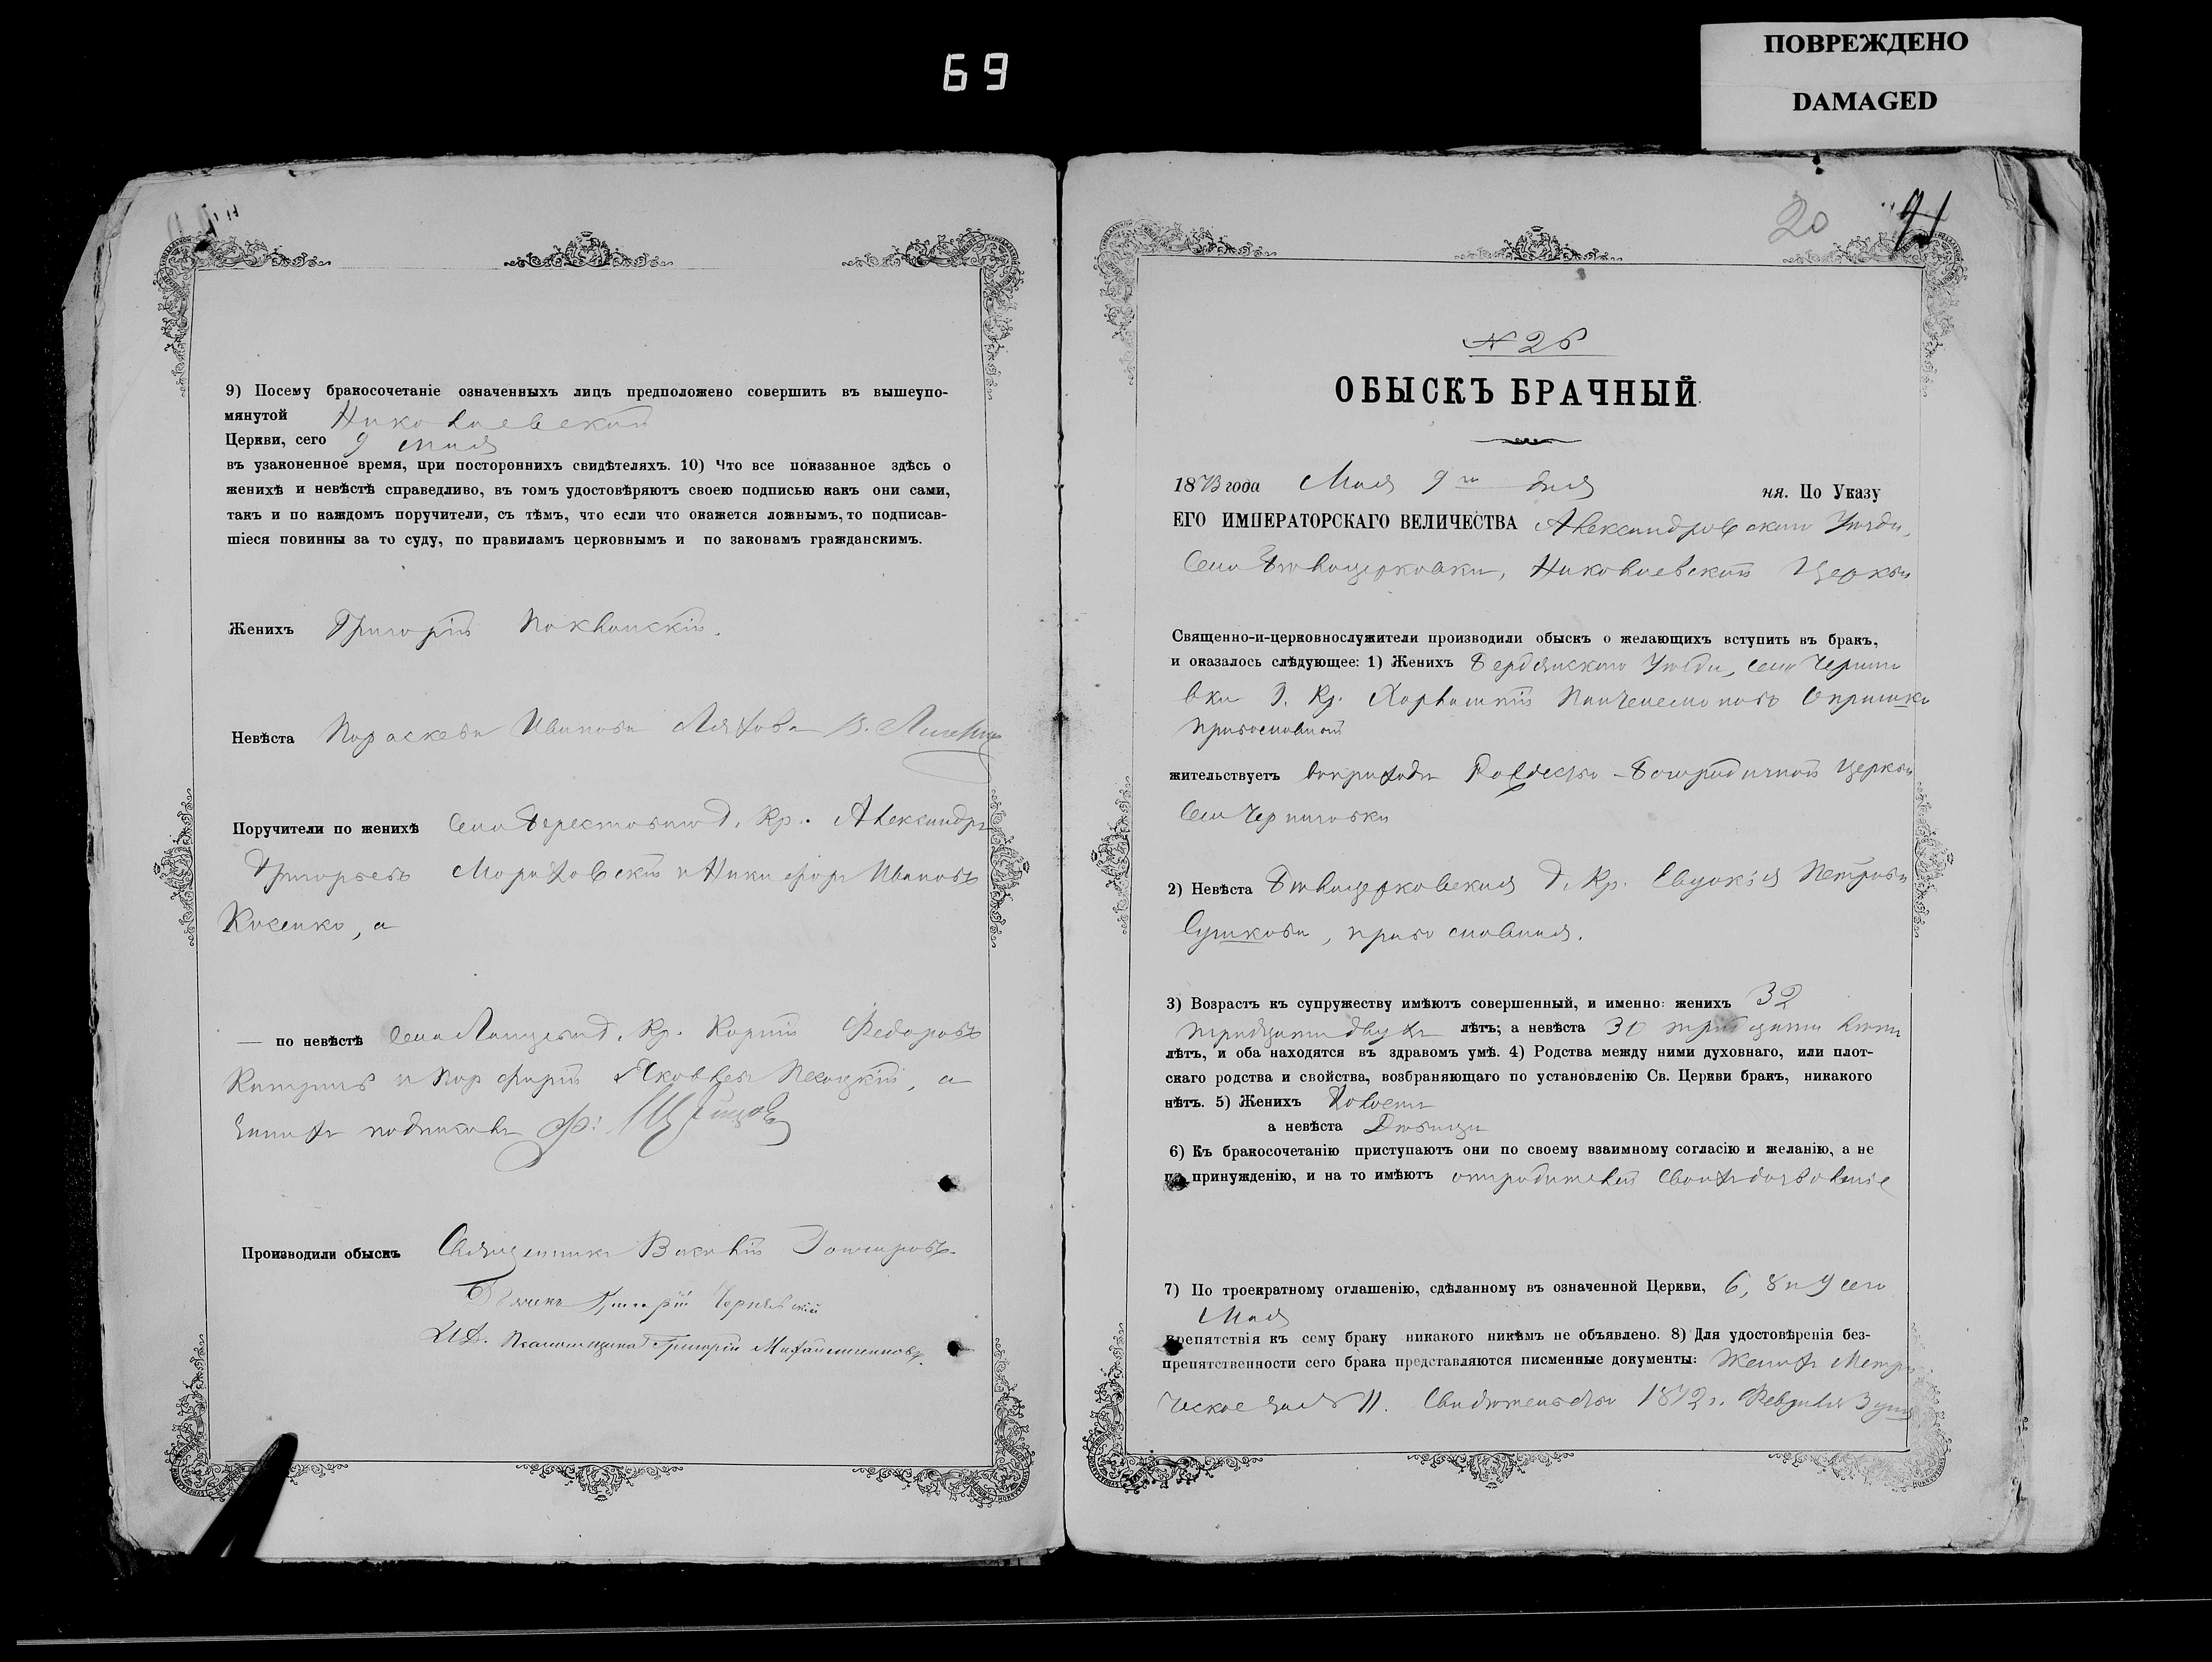 69
ПОВРЕЖДЕНО
DAMAGED
9) Посему бракосочетаніе означенныхъ лицъ предположено совершить въ вышеупо-
мянутой Николаевской
Церкви, сего 9 мая
въ узаконенное время, при постороннихъ свидѣтеляхъ. 10) Что все показанное здѣсь о
женихѣ и невѣстѣ справедливо, въ томъ удостовѣряютъ своею подписью какъ они сами,
такъ и по каждомъ поручители, съ тѣмъ, что если что окажется ложнымъ, то подписав-
шіеся повинны за то суду, по правиламъ церковнымъ и по законамъ гражданскимъ.
Женихъ Григорій
Невѣста Параскева Иванова
Поручители по женихѣ Села Г. Кр. Александръ
Григорьевъ и Никифоръ Ивановъ
Косенко, а
— по невѣстѣ Села Г. Кр. Федоровъ
и Порфирій Яковлевъ, а
за нихъ подписалъ
Производили обыскъ Священникъ Василій
Григорій
И.Д. Псаломщика Григорій
20
71
№ 25
ОБЫСКЪ БРАЧНЫЙ
1873 года Мая 9го дня ня. По Указу
ЕГО ИМПЕРАТОРСКАГО ВЕЛИЧЕСТВА Александровскаго Уѣзда,
Села Бѣлоцерковки, Николаевской Церкви
Священно-и-церковнослужители производили обыскъ о желающихъ вступить въ бракъ,
и оказалось слѣдующее: 1) Женихъ Бердянскаго Уѣзда, села Черниго
вки Г. Кр. Харлампій Опришко
православный
жительствуетъ въ приходѣ Рождество-Богородичной Церкви
Села Черниговки
2) Невѣста Бѣлоцерковская Г. Кр. Евдокія Петрова
Сушкова, православная.
3) Возрастъ къ супружеству имѣютъ совершенный, и именно: женихъ 32
тридцати двухъ лѣтъ; а невѣста 30 тридцати лѣтъ
лѣтъ, и оба находятся въ здравомъ умѣ. 4) Родства между ними духовнаго, или плот-
скаго родства и свойства, возбраняющаго по установленію Св. Церкви бракъ, никакого
нѣтъ. 5) Женихъ Холостъ
а невѣста Дѣвица
6) Къ бракосочетанію приступаютъ они по своему взаимному согласію и желанію, а не
по принужденію, и на то имѣютъ отъ родителей своихъ дозволеніе
7) По троекратному оглашенію, сдѣланному въ означенной Церкви, 6, 8 и 9 сего
Мая
препятствія къ сему браку никакого никѣмъ не объявлено. 8) Для удостовѣренія без-
препятственности сего брака представляются писменные документы: Жениха Метри
ческое Свидѣтельство 1872 г. Февраля 3 дня